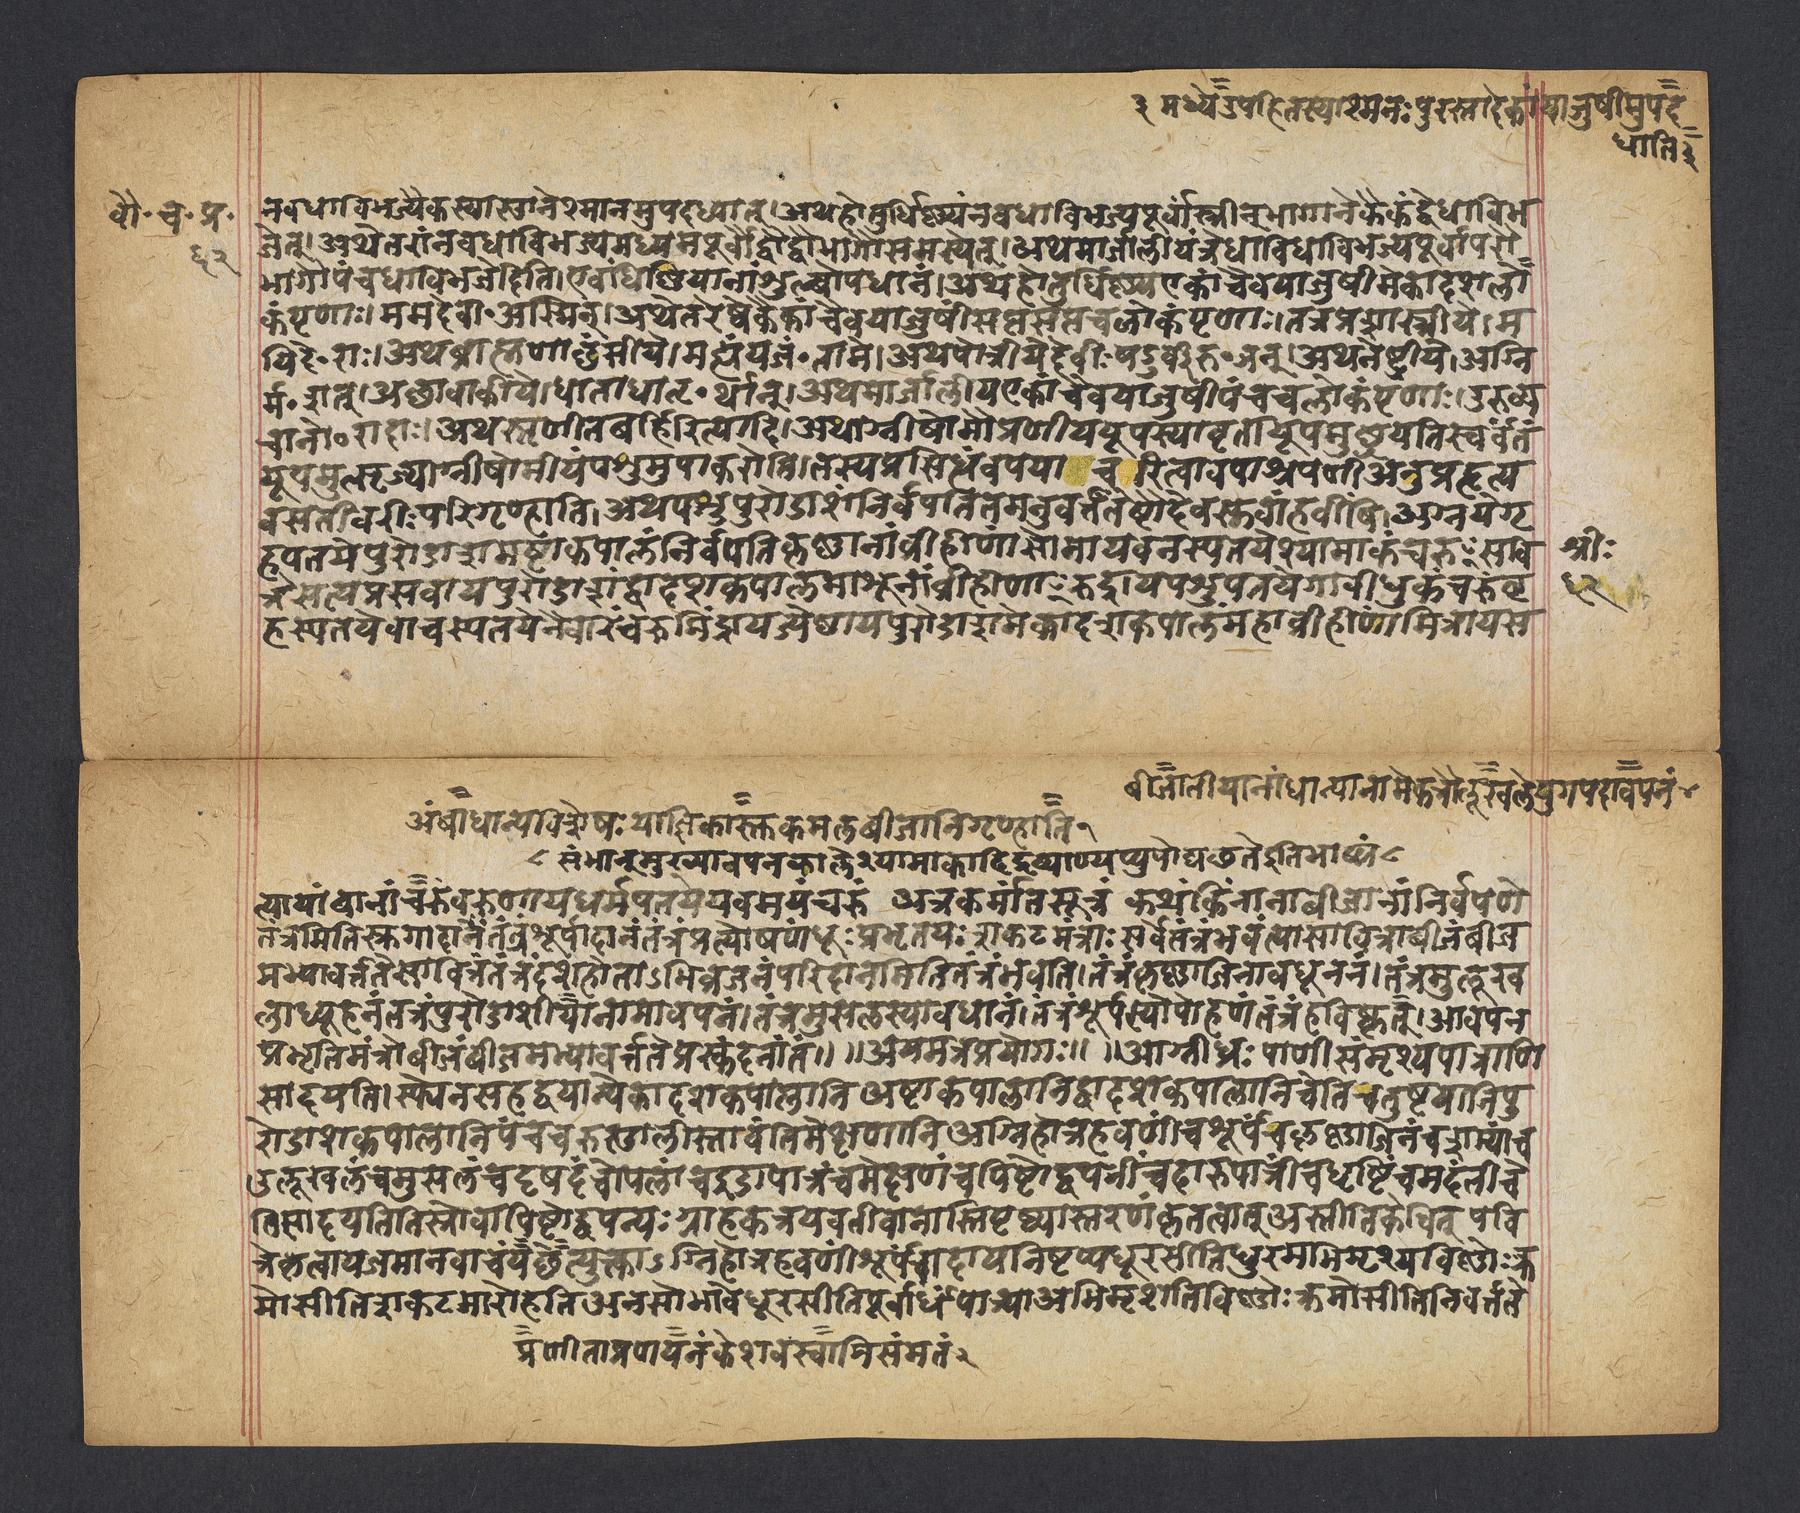 ३ मध्ये उपहितस्याश्मनः पुरस्तादेकां याजुषीमुपद
धाति ३
बौ॰ च॰ प्र॰
६२
नवधाविभज्यैकस्यास्थानेश्मानमुपदध्यात्।अथहोतुर्धिष्ण्यंनवधाविभज्यपूर्वांस्त्रीन्भागानेकैकंद्वेधाविभ
जेत्।अथेतरांनवधाविभज्यमध्यमपूर्वौद्वौद्वौभागौसमस्येत्।अथमार्जालीयंत्रेधाविधाविभज्यपूर्वापरौ
भागौपंचधाविभजेदिति।एवंधिष्णियानांशुल्बोपधानं।अथहोतुर्धिष्ण्यएकांचैवयाजुषीमेकादशलो
कंपृणाः।ममदेवा॰अस्मिन्।अथेतरेष्वेकैकांचैवयाजुषींसप्तसप्तचलोकंपृणाः।तत्रप्रशास्त्रीये।म
यिदे॰राः।अथब्राह्मणाछंसीये।मह्यंयजं॰तामे।अथपोत्रीयेदेवीःषडुर्वीरु॰अनु।अथनेष्ट्रीये।अग्नि
र्म॰रात्।अछावाकीये।धाताधातृ॰र्थान्।अथमार्जालीयएकांचैवयाजुषींपंचचलोकंपृणाः।उरुव्य
चानो॰रादाः।अथस्तृणीतबर्हिरित्येगदि।अथाग्नीषोमौप्रणीययूपस्यावृतायूपमुछ्रयतिस्वर्वंतं
यूपमुत्सृज्याग्नीषोमीयंपशुमुपाकरोति।तस्यप्रसिद्धंवपया चरित्वावपाश्रपणीअनुप्रहृत्य
वसतीवरीःपरिगृण्हाति।अथपशुपुरोडाशंनिर्वपतितमनुवर्त्ततेष्टौदेवसुवांहवींषि।अग्नयेगृ
हपतयेपुरोडाशमष्टाकपालंनिर्वपतिकृष्णानांव्रीहीणांसोमायवनस्पतयेश्यामाकंचरुंसवि
त्रेसत्यप्रसवायपुरोडाशंद्वादशकपालमाशूनांव्रीहीणांरुद्रायपशुपतयेगावीधुकंचरुंबृ
हस्पतयेवाचस्पतयेनैवारंचरुमिंद्रायज्येष्ठायपुरोडाशमेकादशकपालंमहाव्रीहीणांमित्रायस
श्रीः
६२
बीजातीयानांधान्यानामेकत्रोलूखलेयुगपदावपनं४
अंबाधान्यविशेषः याज्ञिकास्तु कमलबीजानिगृण्हाति १
८ संभान्मुख्यावपनकालेश्यामाकादिद्रव्याण्यप्युपोद्यछतेइतिभाष्यं८
त्यायांबानांचरुंवरुणायधर्मपतयेयवमयंचरुं अत्रकर्मांतिसूत्रं कथंकिंनानाबीजानांनिर्वपणे
तंत्रमितिस्रुगादानंतंत्रंशूर्पादानंतंत्रंप्रत्योषणंधूःप्रभृतयः शकटमंत्राः सर्वेतंत्रंभवंत्यासावित्राद्बीजंबीज
मभ्यावर्त्ततेसावित्रंतंत्रंदशहोताऽभिव्रजनंपरिदानमितितंत्रंभवति।तंत्रंकृष्णाजिनावधूननं।तंत्रमुलूख
लाध्यूहनंतंत्रंपुरोडाशीयानामावपनं।तंत्रंमुसलस्यावधानं।तंत्रंशूर्पस्योपोहणंतंत्रंहविष्कृत्।आवपन
प्रभृतिमंत्रोबीजंबीजमभ्यावर्त्ततेप्रस्कंदनांतं॥ ॥अयमत्रप्रयोगः॥ ॥आग्नीध्रः पाणीसंमृश्यपात्राणि
सादयति।स्फ्येनसहद्वयान्येकादशकपालानि अष्टाकपालानिद्वादशकपालानिचेतिचतुष्टयानिपु
रोडाशकपालानिपंचचरुस्थालीस्तावंतिमेक्षणानि अग्निहोत्रहवणींचशूर्पंचकृष्णाजिनंचशम्यांच
उलूखलंचमुसलंचदृषदंचोपलांचइडापात्रंचमेक्षणंचपिष्टोद्वपनींचदारुपात्रींचधृष्टिंचमदंतीच
तिसादयतितिस्रोवापिष्टोद्वपन्यः ग्राहकत्रयवतीवानास्तिपृष्ठ्यास्तरणंकृतत्वात्अस्तीतिकेचित् पवि
त्रेकृत्वायजमानवाचंयछेत्युक्त्वाऽग्निहोत्रहवणींशूर्पंचादायनिष्टप्यधूरसीतिधुरमभिमृश्यविष्णोःक्र
मोसीतिशकटमारोहतिअनसोभावेधूरसीतिपूर्वार्धंपात्र्याअभिमृशतिविष्णोः क्रमोसीतिनिवर्त्तते
प्रणीताप्रणयनंकेशवस्वामिसंमतं२